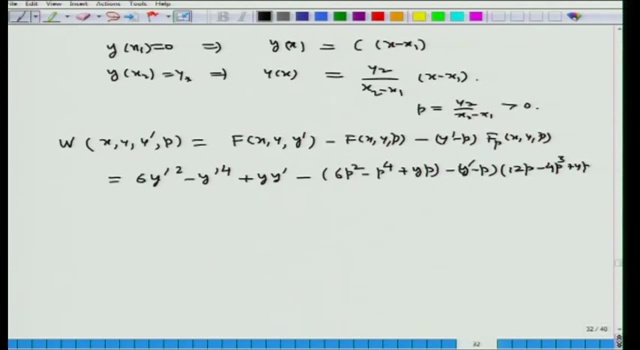 File Edit View Insert Actions Tools Help
y(x₁)=0 ⇒ y(x) = C(x-x₁)
y(x₂)=y₂ ⇒ y(x) = y₂/(x₂-x₁) (x-x₁).
p = y₂/(x₂-x₁) > 0.
W(x,y,y',p) = F(x,y,y') - F(x,y,p) - (y'-p) Fₚ(x,y,p)
= 6y'² - y'⁴ + yy' - (6p² - p⁴ + yp) - (y'-p)(12p - 4p³ + y
32 / 40
32